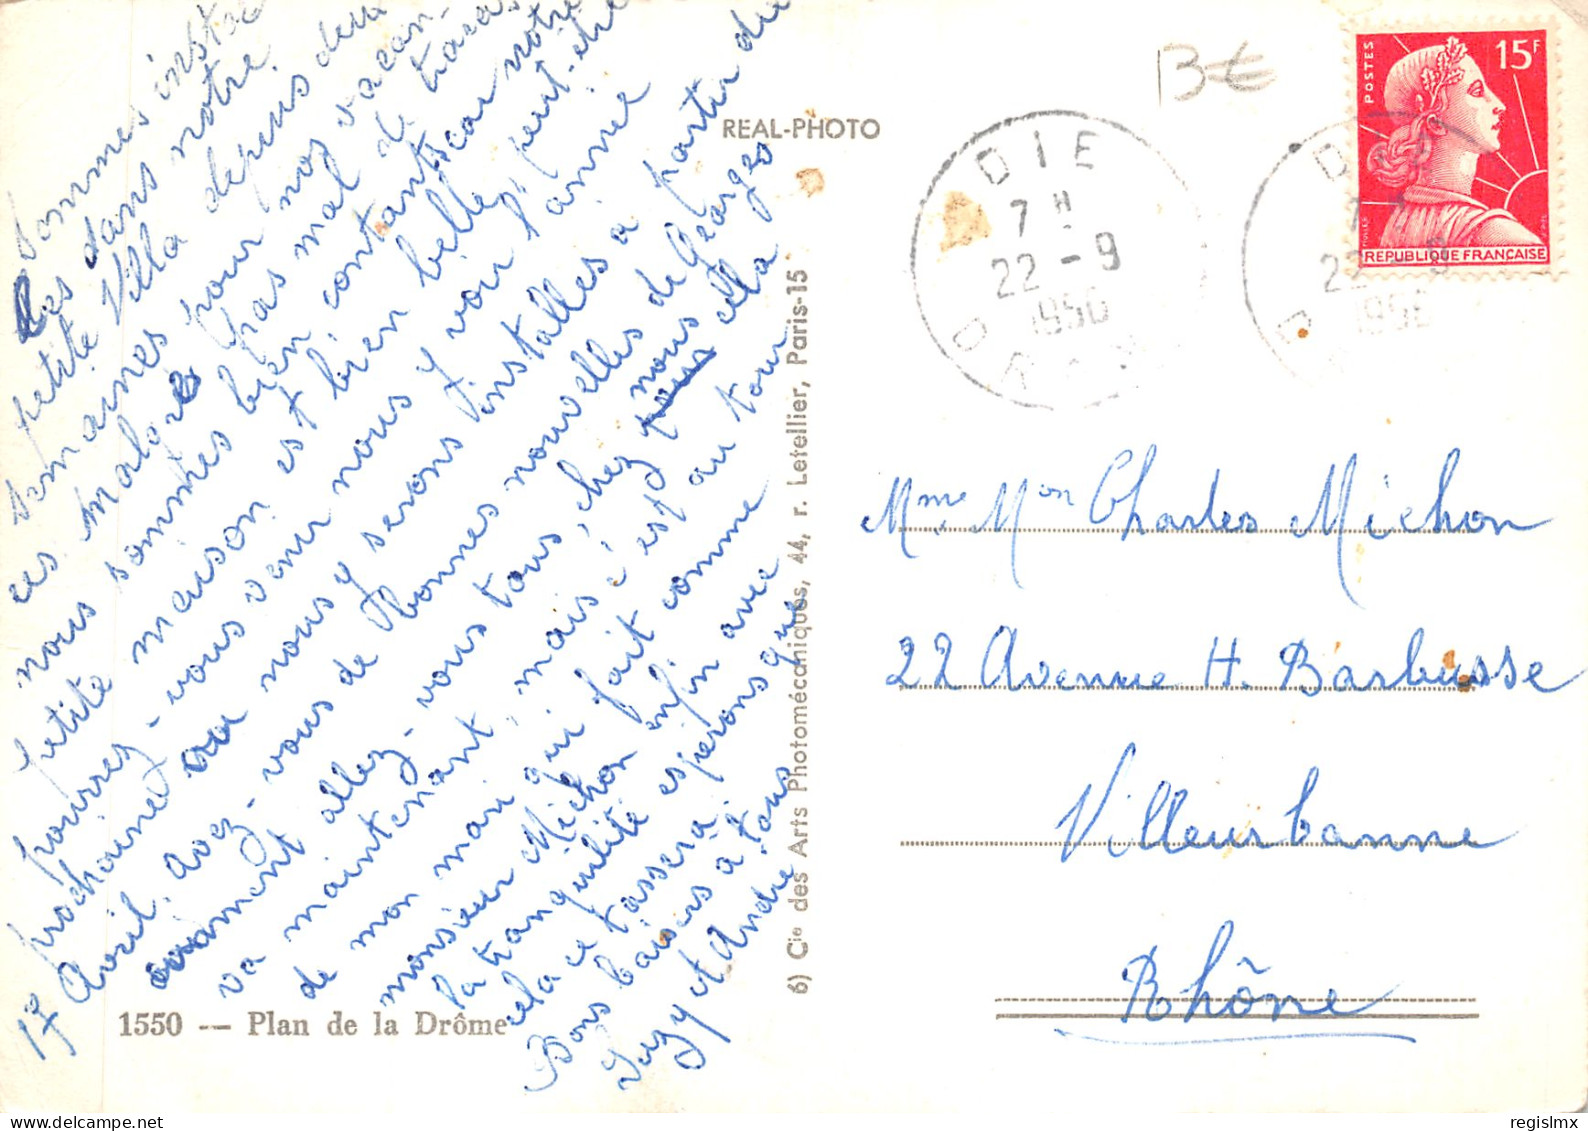 Sommes instal
lés dans notre
petite Villa depuis deux
semaines pour nos vacan-
ces malgré pas mal de tracas
nous sommes bien contants car notre
petite maison est bien belle, peut-être
pourrez-vous venir nous y voir l'année
prochaine ou nous y serons installés à partir du
17 Avril. Avez-vous de bonnes nouvelles de Georges
comment allez-vous tous, chez nous cela
va maintenant, mais c'est au tour
de mon mari qui fait comme
monsieur Michon enfin avec
la tranquilité espérons que
cela ce tassera.
Bons baisers à tous
Suzy et André
1550 -- Plan de la Drôme
REAL-PHOTO
6) Cie des Arts Photomécaniques, 44, r. Letellier, Paris-15
3€
DIE
7 H
22 - 9
1956
DRÔME
POSTES
15F
MULLER
REPUBLIQUE FRANÇAISE
Mme Mon Charles Michon
22 Avenue H. Barbusse
Villeurbanne
Rhône
regislmx